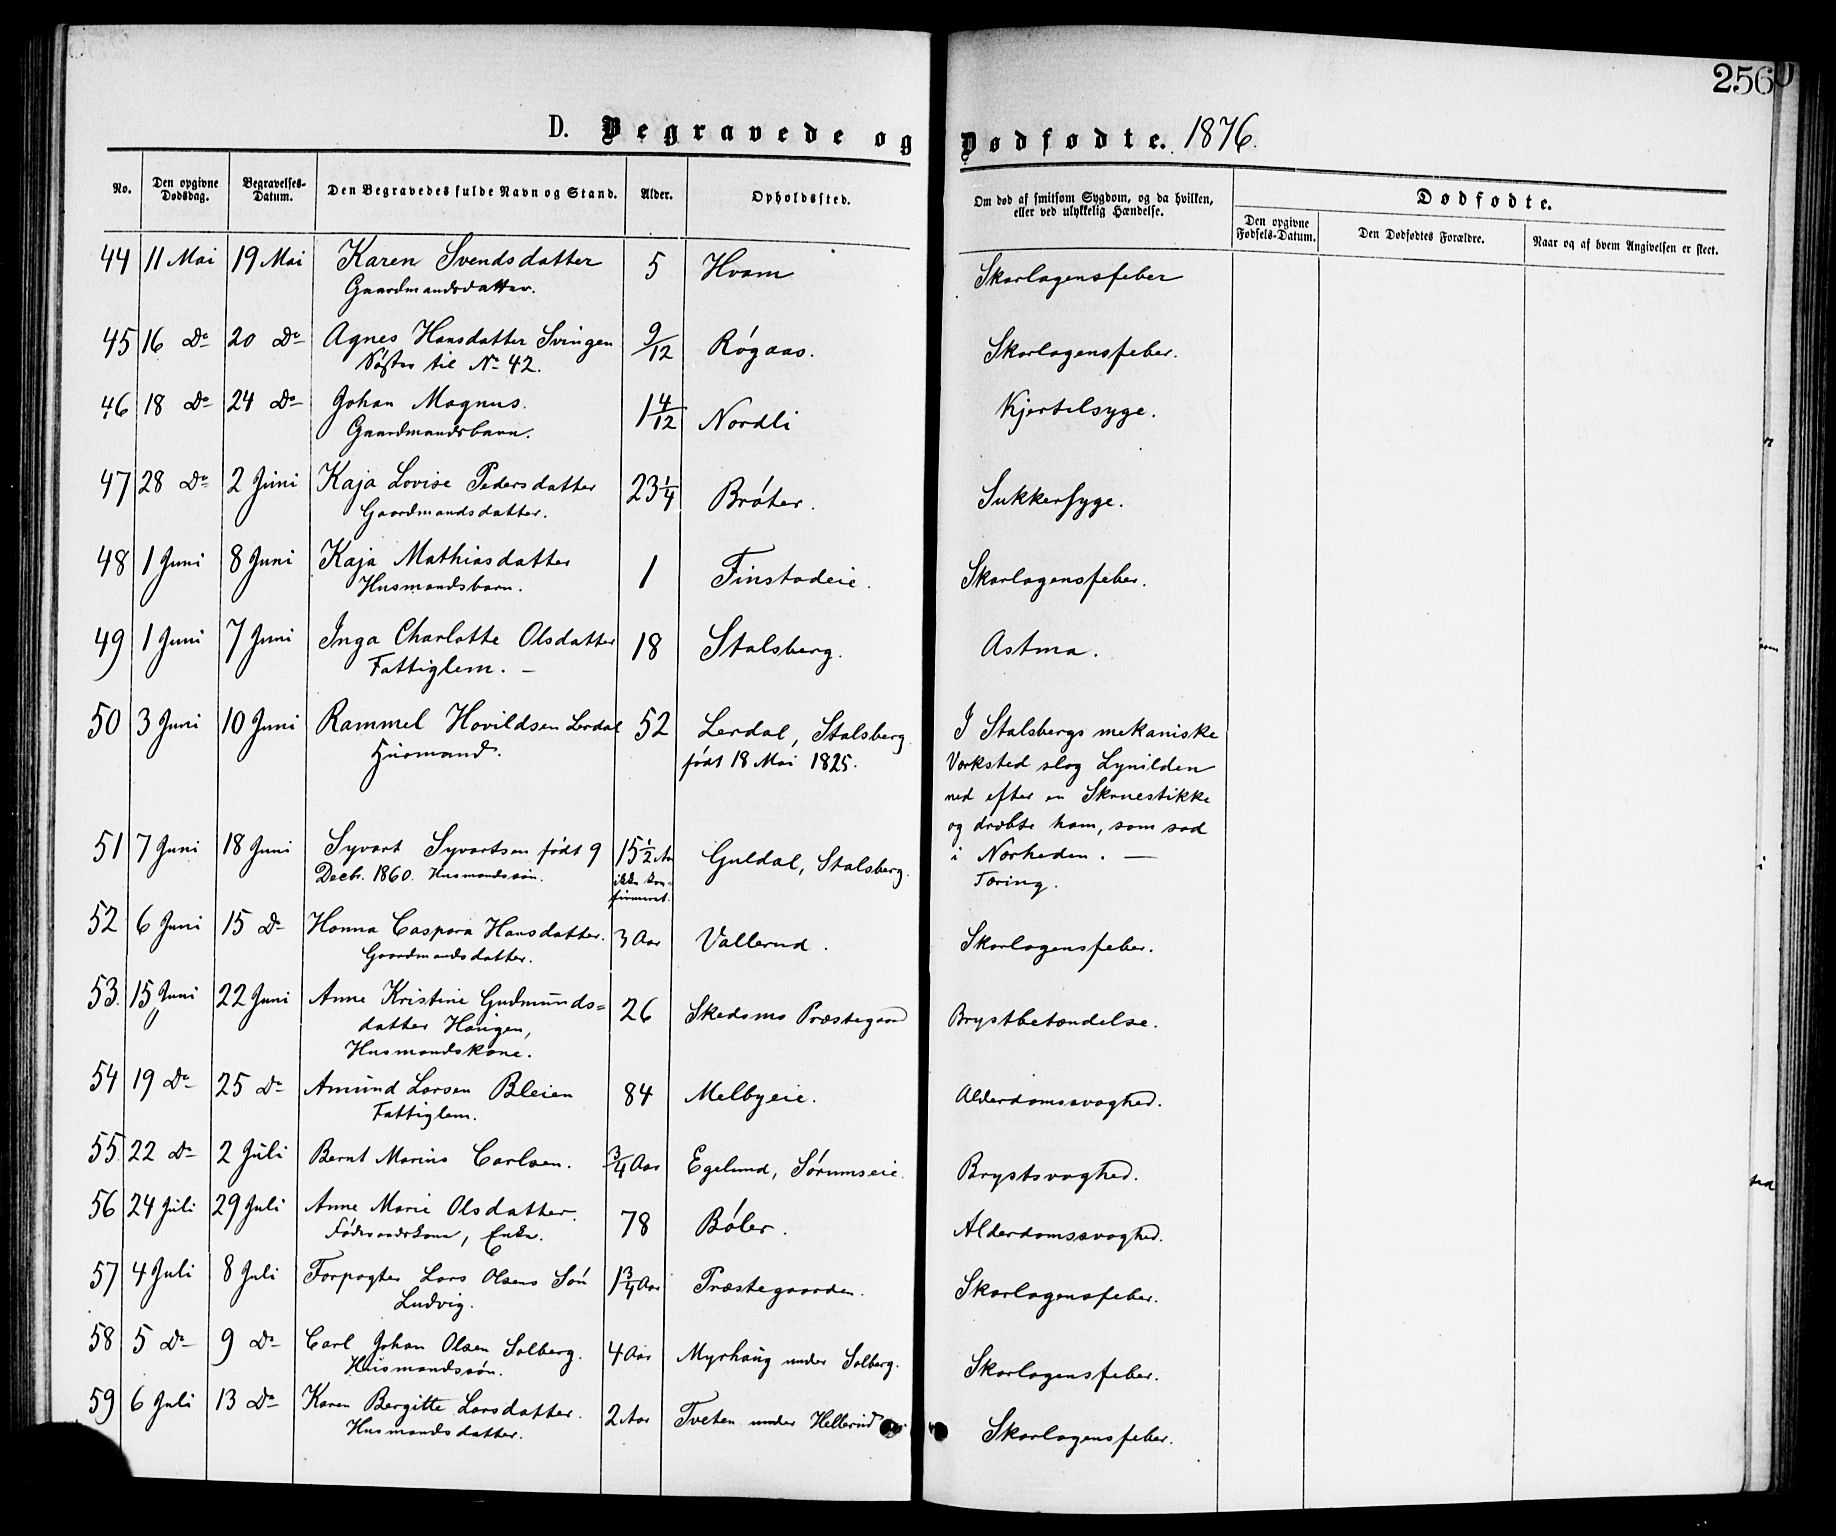 256
D. Begravede og Dødfødte. 1876.
No. Den opgivne Dødsdag. Begravelses-Datum. Den Begravedes fulde Navn og Stand. Alder. Opholdssted. Om død af smitsom Sygdom, og da hvilken, eller ved ulykkelig Hændelse. Dødfødte.
Den opgivne Fødsels-Datum. Den Dødfødtes Forældre. Naar og af hvem Angivelsen er skeet.
44 11 Mai 19 Mai Karen Svendsdatter 5 Hvam Skarlagensfeber
Gaardmandsdatter.
45 16 Do 20 Do Agnes Hansdatter Svingen 9/12 Røgaas. Skarlagensfeber.
Søster til No 42.
46 18 Do 24 Do Johan Magnus. 1 4/12 Nordli Kjertelsyge.
Gaardmandsbarn.
47 28 Do 2 Juni Kaja Lovise Pedersdatter 23 1/4 Bråter. Sukkersyge.
Gaardmandsdatter.
48 1 Juni 8 Juni Kaja Mathiasdatter 1 Finstadeie. Skarlagensfeber.
Husmandsbarn.
49 1 Juni 7 Juni Inga Charlotte Olsdatter 18 Stalsberg. Astma.
Fattiglem. —
50 3 Juni 10 Juni Rammel Hovildsen Lerdal 52 Lerdal, Stalsberg. I Stalsbergs mekaniske
Husmand. født 18 Mai 1825. Værksted slog Lynilden
ned efter en Skruestikke
og dræbte ham, som sad
i Nærheden. —
51 7 Juni 18 Juni Syvart Syvartsen født 9 15 1/2 Aar Guldal, Stalsberg. Tæring.
Decbr. 1860. Husmandssøn. ikke kon-
firmeret.
52 6 Juni 15 Do Hanna Caspara Hansdatter. 3 Aar Vallerud. Skarlagensfeber.
Gaardmandsdatter.
53. 15 Juni 22 Juni Anne Kristine Gudmunds= 26 Skedsmo Præstegaard Brystbetændelse.
datter Haugen,
Husmandskone.
54 19 Do 25 Do Amund Larsen Bleien 84 Melbyeie. Alderdomssvaghed.
Fattiglem.
55. 22 Do 2 Juli Bernt Marius Carlsen. 3/4 Aar Egelund, Sørumseie. Brystsvaghed.
56 24 Juli 29 Juli Anne Marie Olsdatter. 78 Bøler. Alderdomssvaghed.
Føderaadskone, Enke.
57 4 Juli 8 Juli Forpagter Lars Olsens Søn 1 3/4 Aar Præstegaarden. Skarlagensfeber.
Ludvig.
58 5 Do 9 Do Carl Johan Olsen Solberg. 4 Aar Myrhaug under Solberg. Skarlagensfeber.
Husmandssøn.
59 6 Juli 13 Do Karen Bergitte Larsdatter. 2 Aar Tveten under Hellerud Skarlagensfeber.
Husmandsdatter.